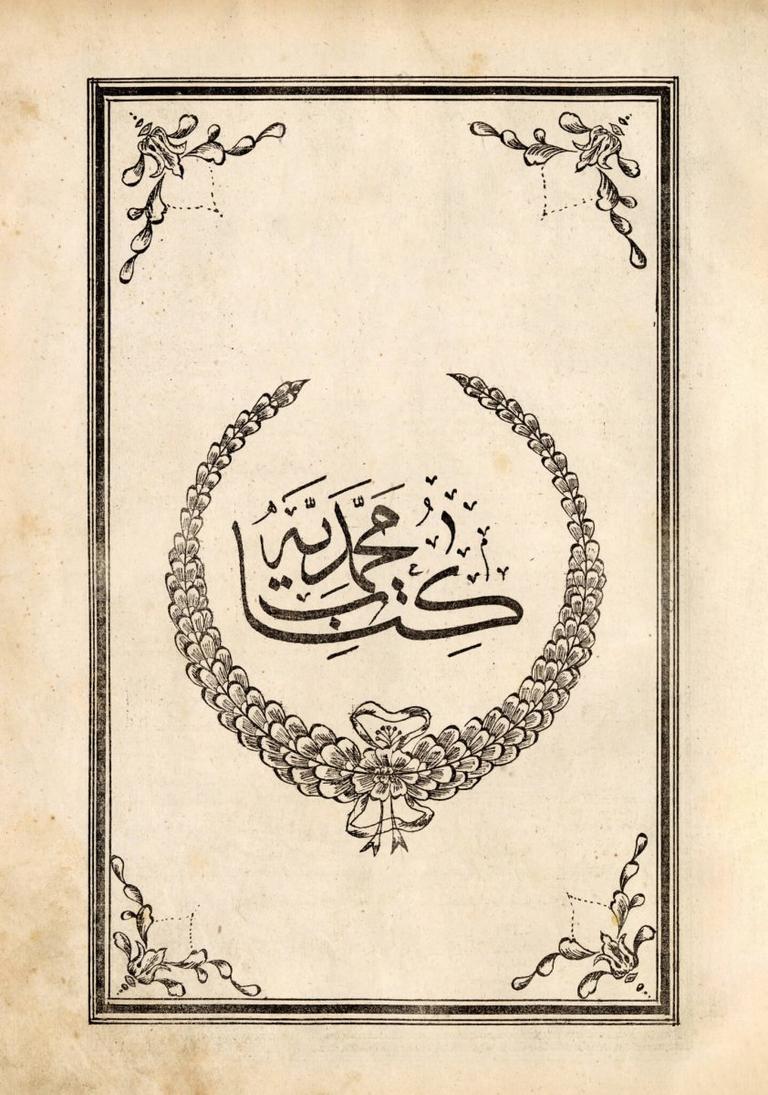 كتاب محمدیه